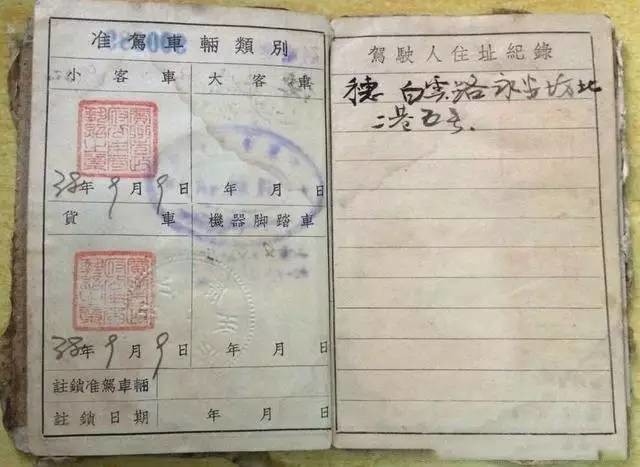 准駕車輛類別
小客車
大客車
38年9月9日
年 月 日
貨車
機器脚踏車
38年9月9日
年 月 日
註銷准駕車輛
註銷日期 年 月 日
駕駛人住址紀錄
穗 白雲路永安坊北
二巷五号